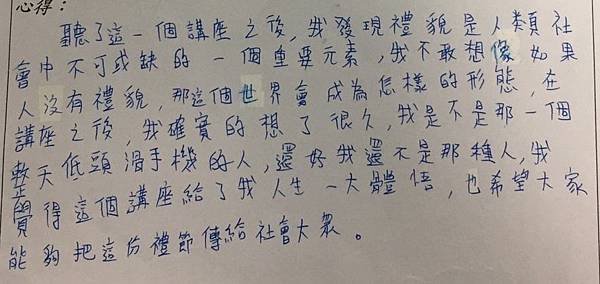 心得：
聽了這一個講座之後，我發現禮貌是人類社
會中不可或缺的一個重要元素，我不敢想像如果
人沒有禮貌，那這個世界會成為怎樣的形態，在
講座之後，我確實的想了很久，我是不是那一個
整天低頭滑手機的人，還好我還不是那種人，我
覺得這個講座給了我人生一大體悟，也希望大家
能夠把這份禮節傳給社會大眾。